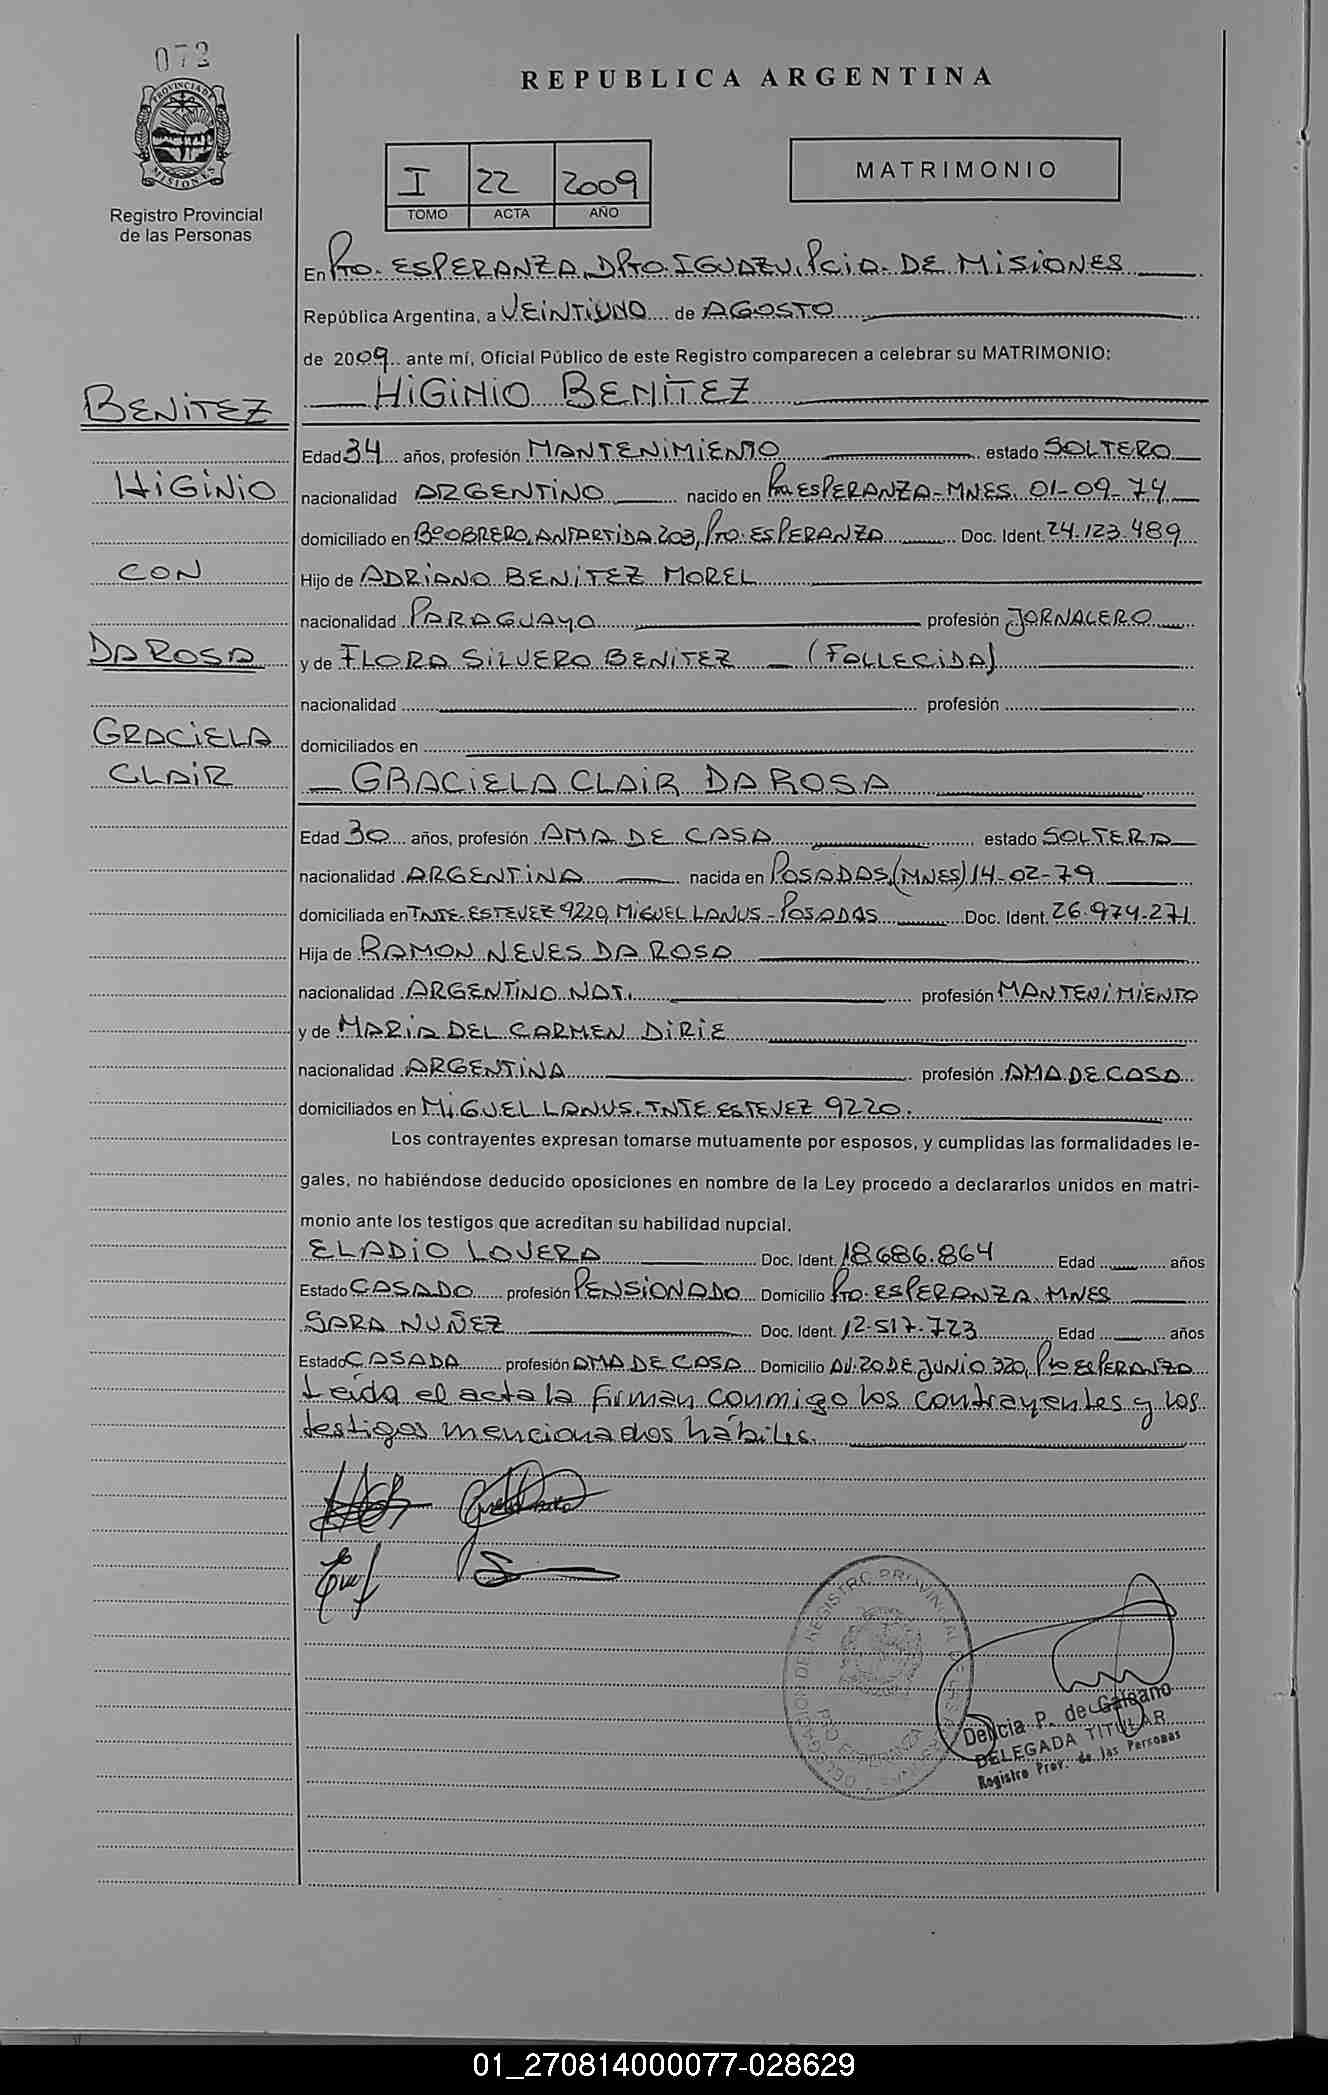 072
REPUBLICA ARGENTINA
PROVINCIA DE MISIONES
Registro Provincial
de las Personas
I 22 2009
TOMO ACTA AÑO
MATRIMONIO
En Pto. ESPERANZA, DPTO. IGUAZU, Pcia. DE MISIONES
República Argentina, a VEINTIUNO de AGOSTO
de 2009 ante mí, Oficial Público de este Registro comparecen a celebrar su MATRIMONIO:
HIGINIO BENITEZ
BENITEZ
HIGINIO
CON
DA ROSA
GRACIELA
CLAIR
Edad 34 años, profesión MANTENIMIENTO estado SOLTERO
nacionalidad ARGENTINO nacido en Pto ESPERANZA-MNES. 01-09-74
domiciliado en Bº OBRERO, ANTARTIDA 203, Pto. ESPERANZA Doc. Ident. 24.123.489
Hijo de ADRIANO BENITEZ MOREL
nacionalidad PARAGUAYO profesión JORNALERO
y de FLORA SILVERO BENITEZ — (FALLECIDA)
nacionalidad profesión
domiciliados en
GRACIELA CLAIR DA ROSA
Edad 30 años, profesión AMA DE CASA estado SOLTERA
nacionalidad ARGENTINA nacida en POSADAS, (MNES) 14-02-79
domiciliada en TNTE. ESTEVEZ 9220, MIGUEL LANUS-POSADAS Doc. Ident. 26.974.271
Hija de RAMON NEVES DA ROSA
nacionalidad ARGENTINO NAT. profesión MANTENIMIENTO
y de MARIA DEL CARMEN DIRIE
nacionalidad ARGENTINA profesión AMA DE CASA
domiciliados en MIGUEL LANUS, TNTE. ESTEVEZ 9220.
Los contrayentes expresan tomarse mutuamente por esposos, y cumplidas las formalidades le-
gales, no habiéndose deducido oposiciones en nombre de la Ley procedo a declararlos unidos en matri-
monio ante los testigos que acreditan su habilidad nupcial.
ELADIO LOVERA Doc. Ident. 18.686.864 Edad años
Estado CASADO profesión PENSIONADO Domicilio Pto. ESPERANZA. MNES
SARA NUÑEZ Doc. Ident. 12.517.723 Edad años
Estado CASADA profesión AMA DE CASA Domicilio AV. 20 DE JUNIO 320, Pto ESPERANZA
Leída el acta la firman conmigo los contrayentes y los
testigos mencionados hábiles.
DELEGACION DEL REGISTRO PROVINCIAL DE LAS PERSONAS
PTO ESPERANZA
Delicia P. de Galeano
DELEGADA TITULAR
Registro Prov. de las Personas
01_270814000077-028629